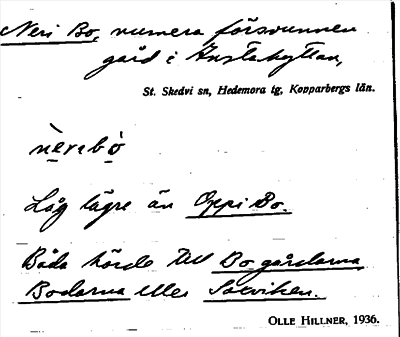 Neri Bo, numera försvunnen
gård i Anstahyttan,
St. Skedvi sn, Hedemora tg, Kopparbergs län.
nèrebò
Låg lägre än Oppi Bo.
Båda hörde till Bo gårdarna
Bodarna eller
OLLE HILLNER, 1936.